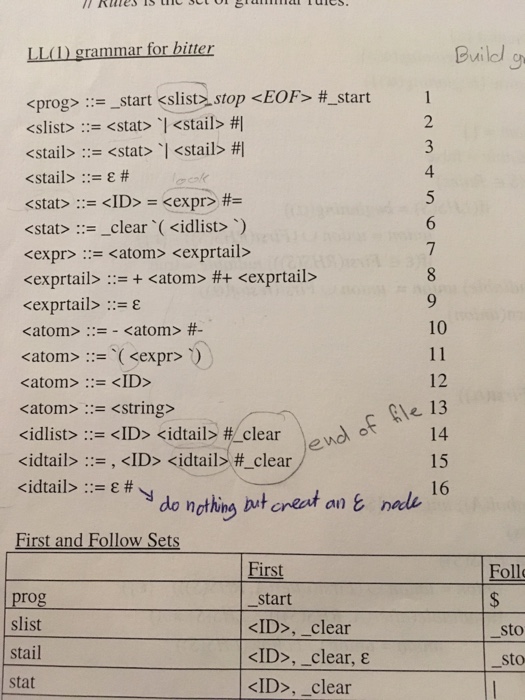 // Rules is the set of grammar rules.
LL(1) grammar for bitter
Build
<prog> ::= _start <slist>_stop <EOF> #_start 1
<slist> ::= <stat> `| <stail> #| 2
<stail> ::= <stat> `| <stail> #| 3
<stail> ::= ε # 4
look
<stat> ::= <ID> = <expr> #= 5
<stat> ::= _clear `( <idlist> `) 6
<expr> ::= <atom> <exprtail> 7
<exprtail> ::= + <atom> #+ <exprtail> 8
<exprtail> ::= ε 9
<atom> ::= - <atom> #- 10
<atom> ::= `( <expr> `) 11
<atom> ::= <ID> 12
<atom> ::= <string> 13
<idlist> ::= <ID> <idtail> #_clear end of file 14
<idtail> ::= , <ID> <idtail> #_clear 15
<idtail> ::= ε # 16
do nothing but creat an ε node
First and Follow Sets
First Follo
prog _start $
slist <ID>, _clear _sto
stail <ID>, _clear, ε _sto
stat <ID>, _clear |